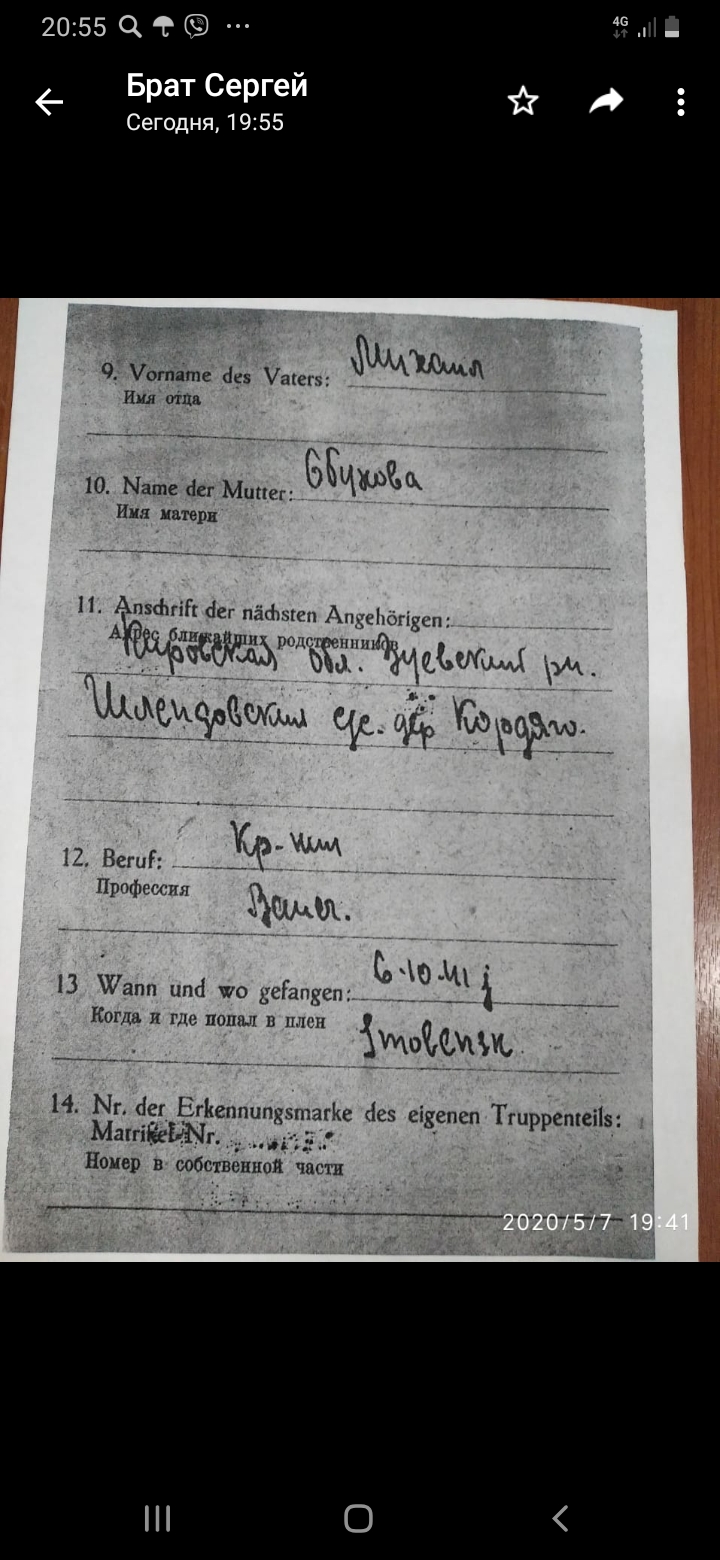 20:55
4G
Брат Сергей
Сегодня, 19:55
9. Vorname des Vaters: Михаил
Имя отца
10. Name der Mutter: Обухова
Имя матери
11. Anschrift der nächsten Angehörigen:
Адрес ближайших родственников
Кировская обл. Зуевский рн.
Шлендовский с/с. дер Кордяго.
12. Beruf: Кр-нин
Профессия
Bauer.
13 Wann und wo gefangen: 6.10.41 j
Когда и где попал в плен
Smolensk
14. Nr. der Erkennungsmarke des eigenen Truppenteils:
Matrikel-Nr.
Номер в собственной части
2020/5/7 19:41